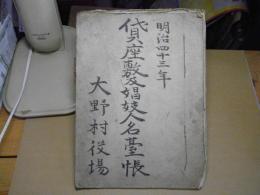 明治四十三年
貸座敷及娼妓人名臺帳
大野村役場